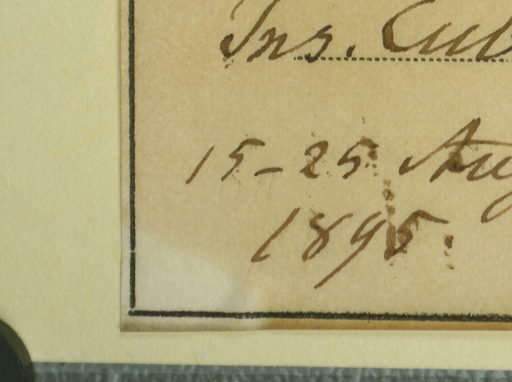 Ins. Cub
15-25 Aug
1895.